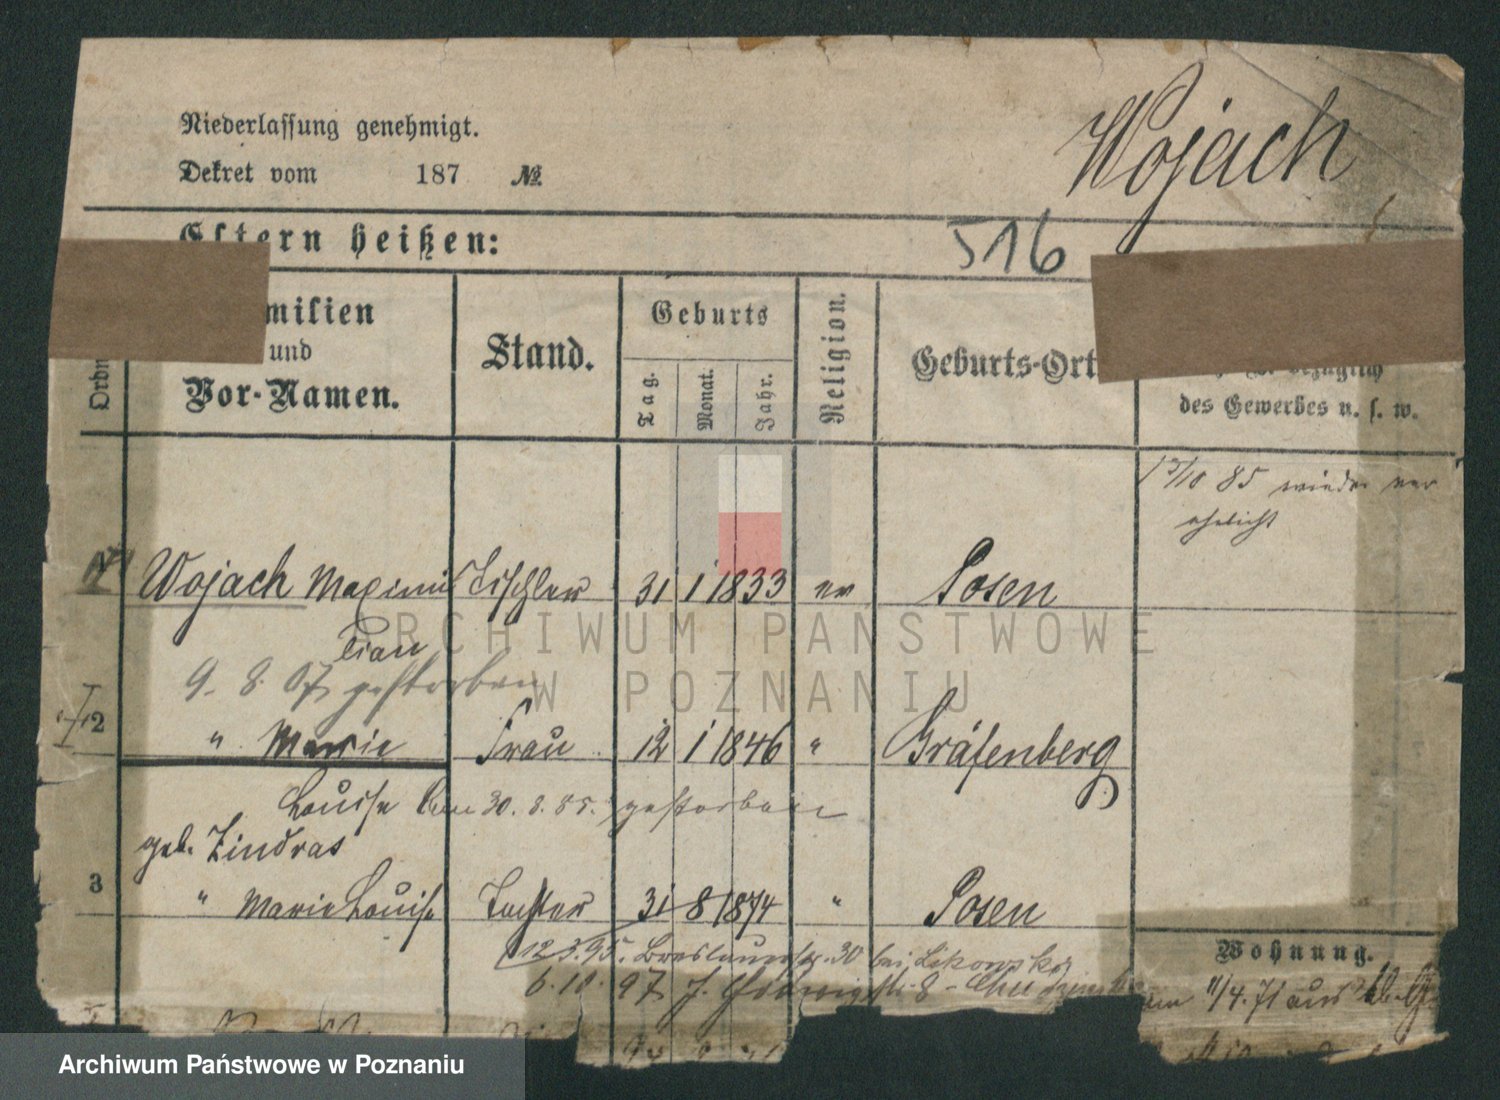 Niederlassung genehmigt.
Dekret vom 187 №
Wojach
Eltern heißen:
516
milien
und
Vor-Namen.
Ordn
Stand.
Geburts
Tag.
Monat.
Jahr.
Religion.
Geburts-Ort
bezüglich
des Gewerbes u. s. w.
85 wieder ver
ehelicht
Wojach Maximi Tischler 31 1 1833 ev Posen
lian
9. 8. 07 gestorben
2 " Marie Frau 12 1 1846 " Gräfenberg
Louise am 30. 8. 85. gestorben
geb. Zindras
3 " Marie Louise Tochter 31 8 1874 " Posen
12 3. 95. Breslauerstr. 30 bei Likowski
6. 10. 97
8
Wohnung.
11/4. 71 aus
ARCHIWUM PAŃSTWOWE
W POZNANIU
Archiwum Państwowe w Poznaniu